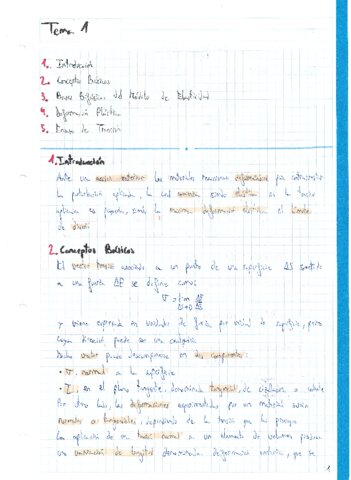 Tema 1
1. Introducción
2. Conceptos Básicos
3. Bases Físicas del Módulo de Elasticidad
4. Deformación Plástica
5. Ensayo de Tracción
1. Introducción
Ante una acción exterior los materiales reaccionan deformándose para contrarrestar
la perturbación aplicada, la cual siendo elástica si la
aplicada es pequeña, siendo la máxima deformación elástica el límite
de
2. Conceptos Básicos
El vector tensión asociado a un punto de una superficie ΔS sometido
a una fuerza ΔF se define como:
σ = lim ΔF
ΔS→0 ΔS
y viene expresado en unidades de fuerza por unidad de superficie, pero
cuya dirección puede ser una cualquiera.
Dicho vector puede descomponerse en dos componentes:
- σ, normal a la superficie
- τ, en el plano tangente, denominada tangencial, de cizalladura o cortante
Por otro lado, las deformaciones experimentadas por un material serán
normales o tangenciales, dependiendo de la tensión que las provoque
La aplicación de una tensión normal a un elemento de volumen produce
una variación de longitud denominada deformación unitaria, que se
1